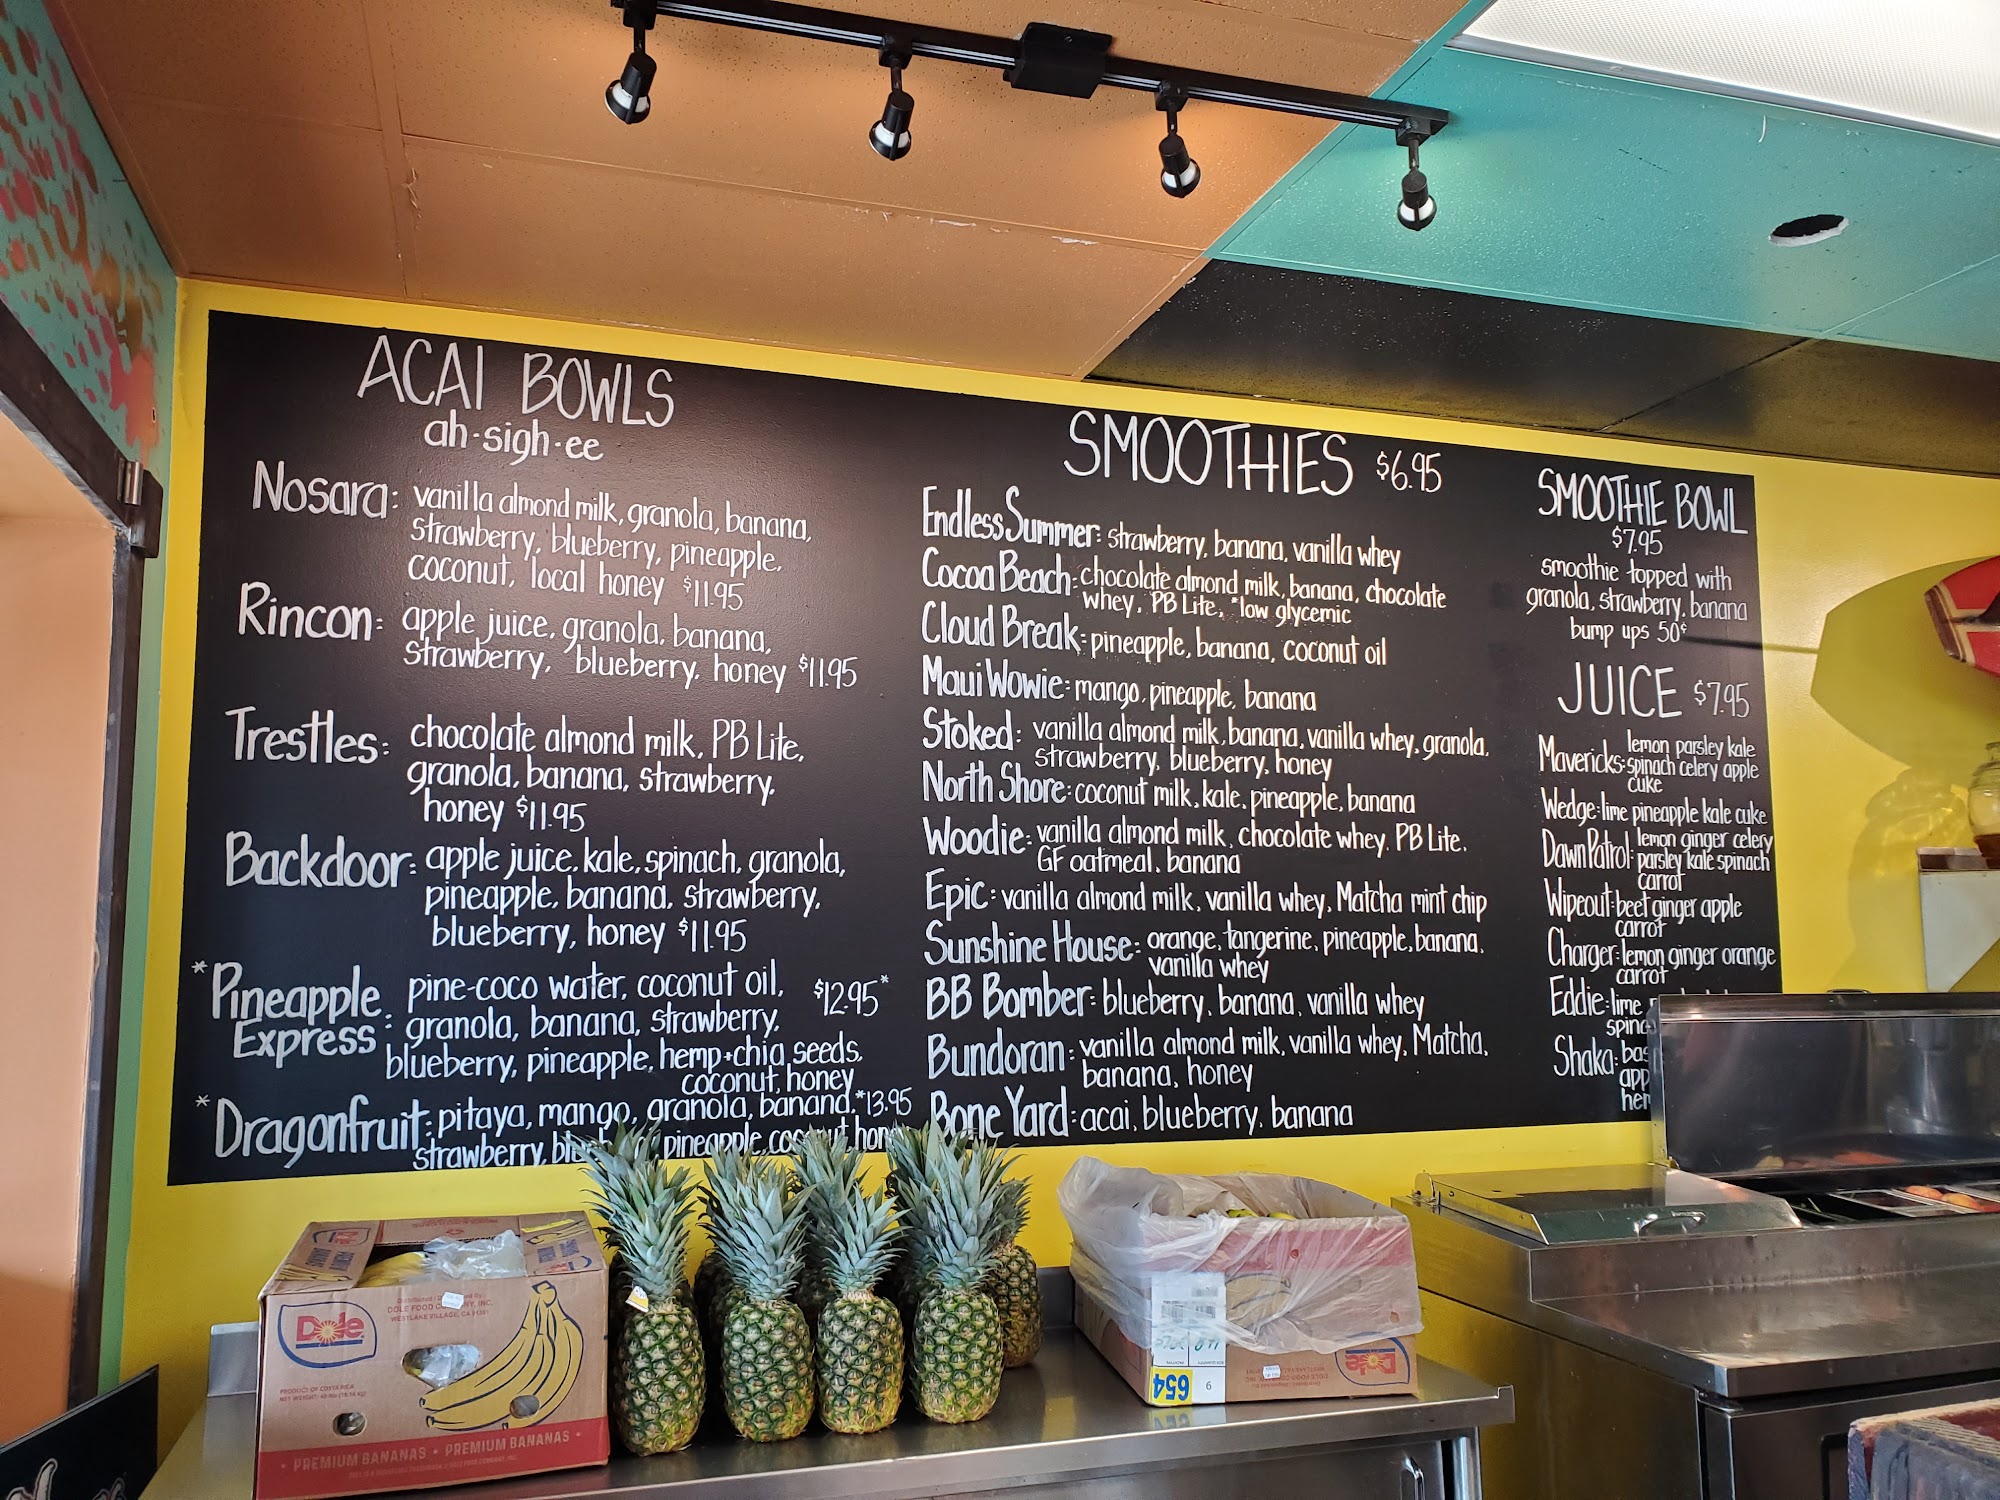 ACAI BOWLS
ah-sigh-ee
Nosara: vanilla almond milk, granola, banana,
strawberry, blueberry, pineapple,
coconut, local honey $11.95
Rincon: apple juice, granola, banana,
strawberry, blueberry, honey $11.95
Trestles: chocolate almond milk, PB Lite,
granola, banana, strawberry,
honey $11.95
Backdoor: apple juice, kale, spinach, granola,
pineapple, banana, strawberry,
blueberry, honey $11.95
*Pineapple Express: pine-coco water, coconut oil, $12.95*
granola, banana, strawberry,
blueberry, pineapple, hemp+chia seeds,
coconut, honey
*Dragonfruit: pitaya, mango, granola, banana, *13.95
strawberry, pineapple,
SMOOTHIES $6.95
Endless Summer: strawberry, banana, vanilla whey
Cocoa Beach: chocolate almond milk, banana, chocolate
whey, PB Lite, *low glycemic
Cloud Break: pineapple, banana, coconut oil
Maui Wowie: mango, pineapple, banana
Stoked: vanilla almond milk, banana, vanilla whey, granola,
strawberry, blueberry, honey
North Shore: coconut milk, kale, pineapple, banana
Woodie: vanilla almond milk, chocolate whey, PB Lite,
GF oatmeal, banana
Epic: vanilla almond milk, vanilla whey, Matcha mint chip
Sunshine House: orange, tangerine, pineapple, banana,
vanilla whey
BB Bomber: blueberry, banana, vanilla whey
Bundoran: vanilla almond milk, vanilla whey, Matcha,
banana, honey
Bone Yard: acai, blueberry, banana
SMOOTHIE BOWL
$7.95
smoothie topped with
granola, strawberry, banana
bump ups 50¢
JUICE $7.95
Mavericks: lemon parsley kale
spinach celery apple
cuke
Wedge: lime pineapple kale cuke
Dawn Patrol: lemon ginger celery
parsley kale spinach
carrot
Wipeout: beet ginger apple
carrot
Charger: lemon ginger orange
carrot
Eddie: lime
Shaka:
Dole
DOLE FOOD COMPANY, INC.
WESTLAKE VILLAGE, CA 91361
PRODUCT OF COSTA RICA
PREMIUM BANANAS • PREMIUM BANANAS •
Dole
654
9